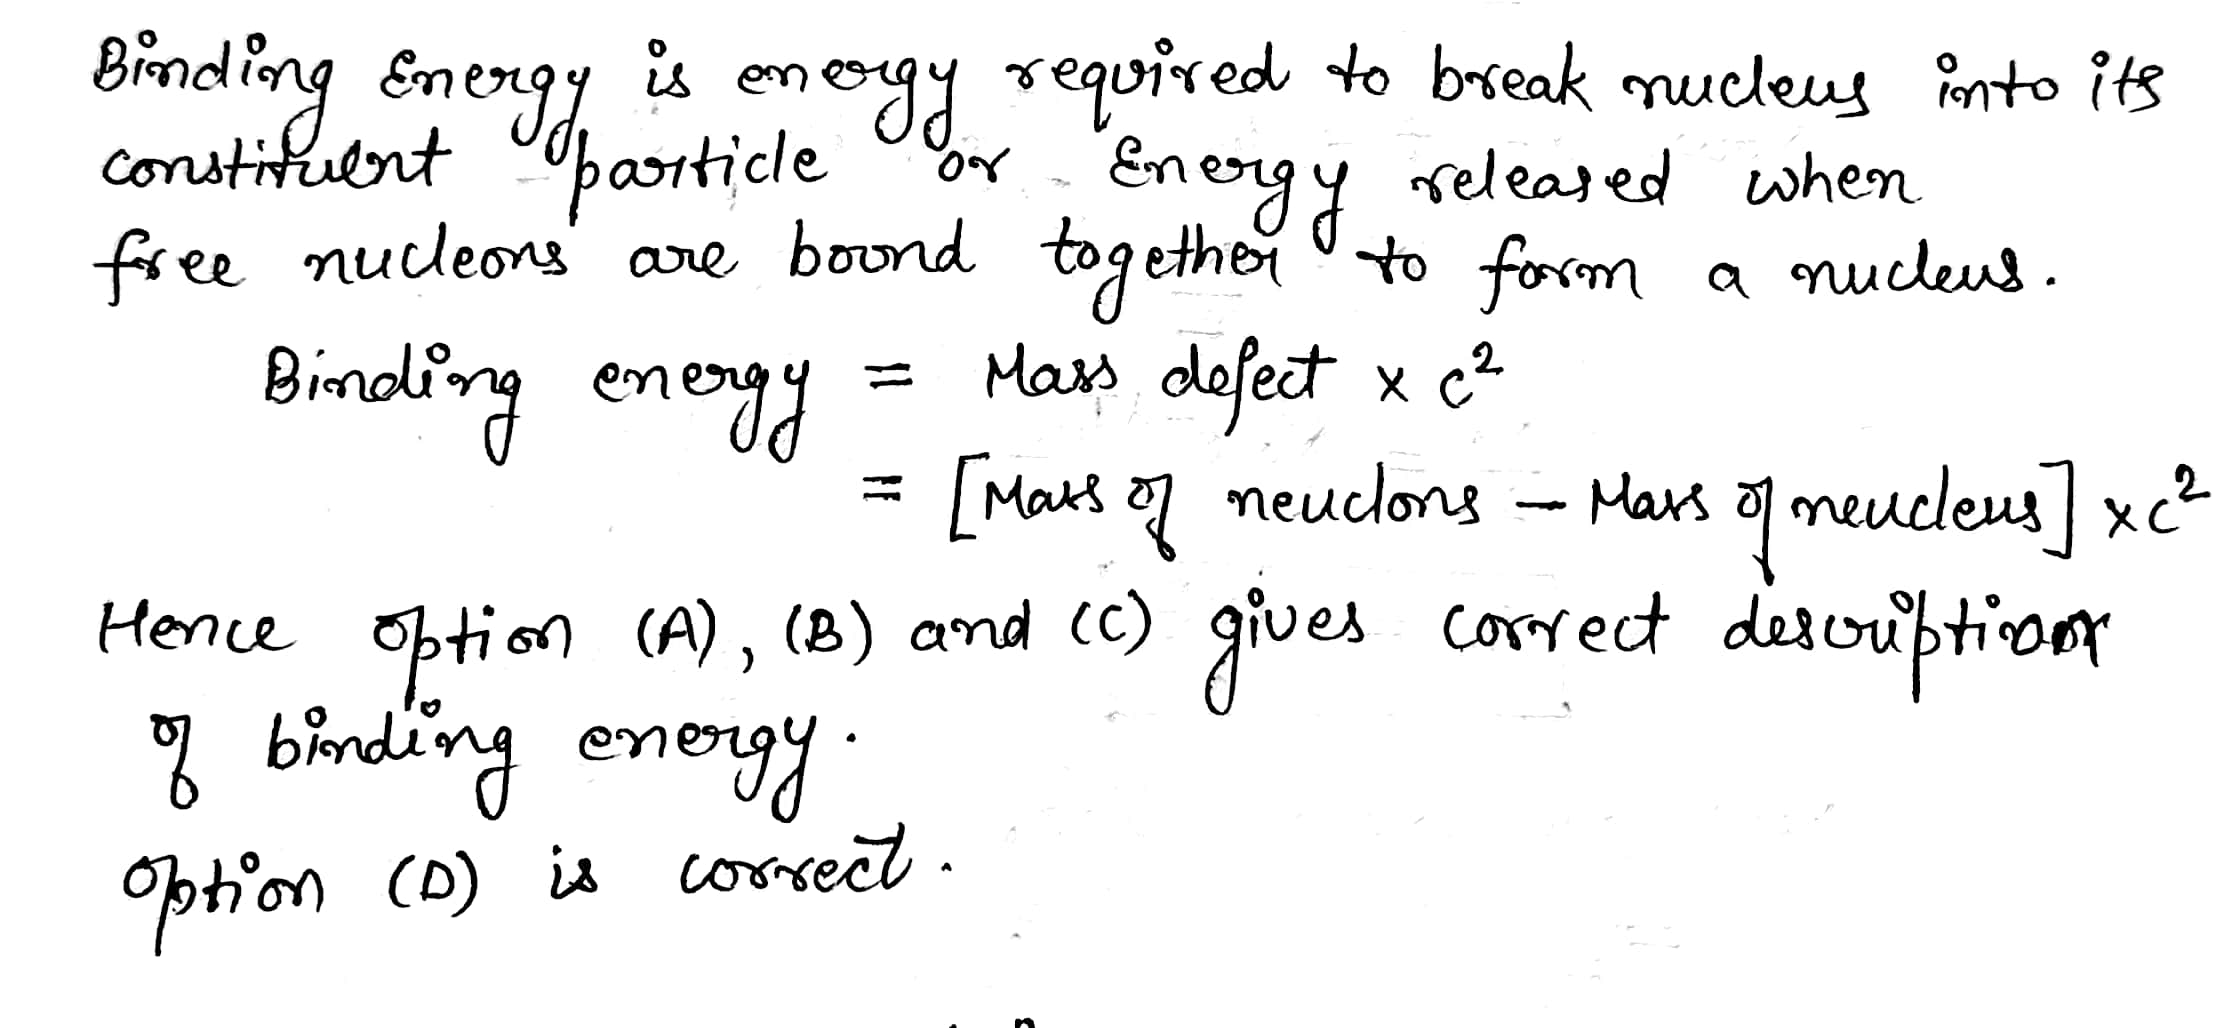 Binding Energy is energy required to break nucleus into its
constituent particle or Energy released when
free nucleons are bound together to form a nucleus.
Binding energy = Mass defect x c²
= [Mass of neuclons - Mass of neucleus] x c²
Hence option (A), (B) and (C) gives correct description
of binding energy.
option (D) is correct.